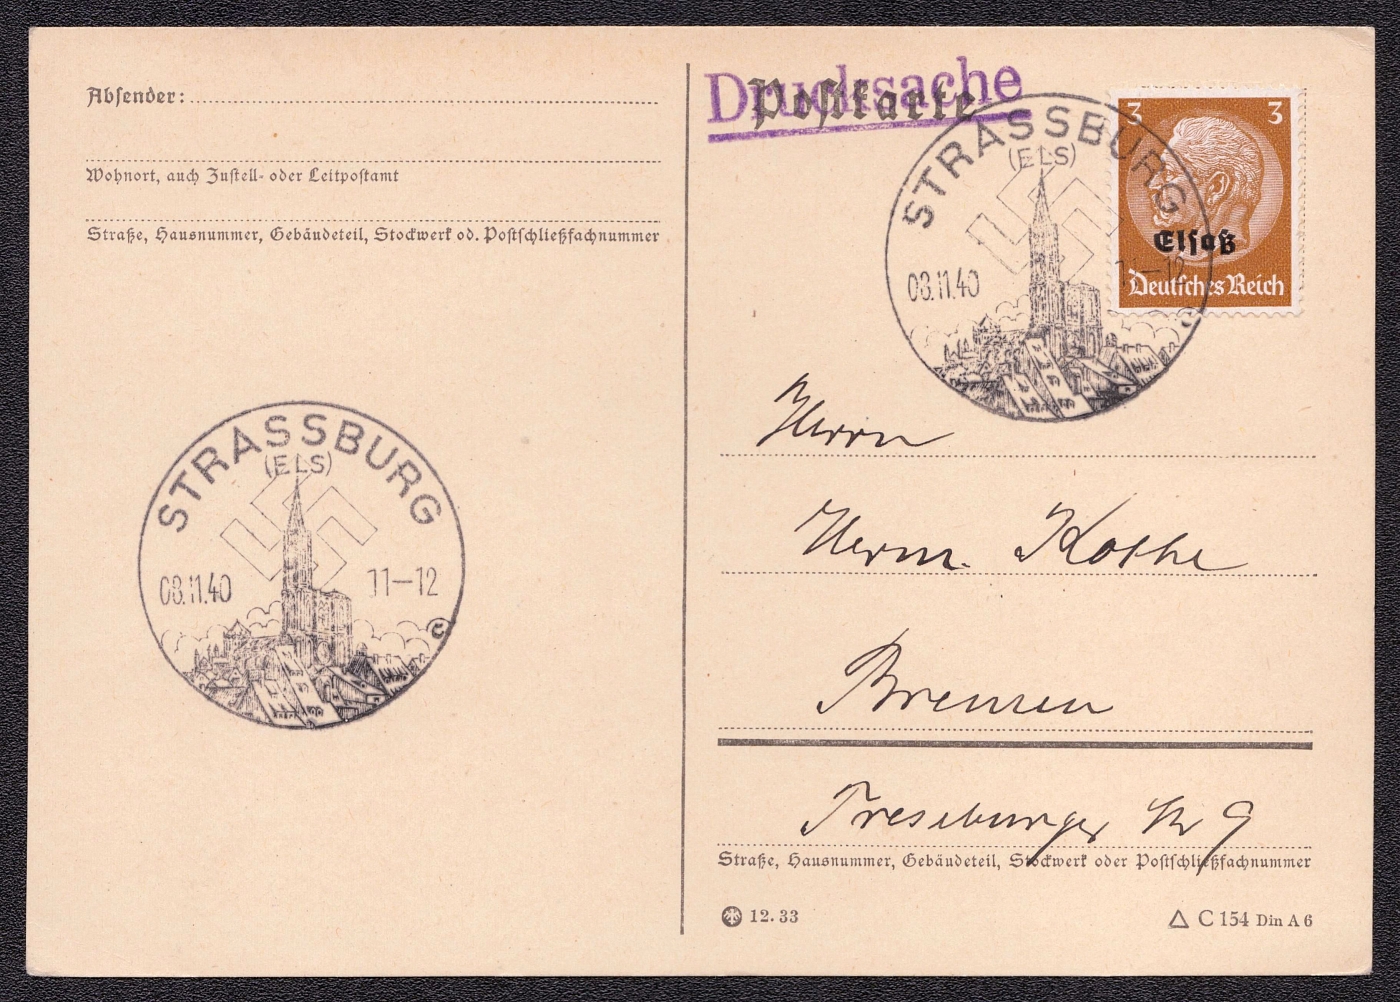 Absender:
Wohnort, auch Zustell- oder Leitpostamt
Straße, Hausnummer, Gebäudeteil, Stockwerk od. Postschließfachnummer
STRASSBURG
(ELS)
08.11.40 11—12
c
Postkarte
Drucksache
STRASSBURG
(ELS)
08.11.40 11—12
c
3 3
Elsaß
Deutsches Reich
Herrn
Herm. Kothe
Bremen
Treseburger Str 9
Straße, Hausnummer, Gebäudeteil, Stockwerk oder Postschließfachnummer
12.33
C 154 Din A 6